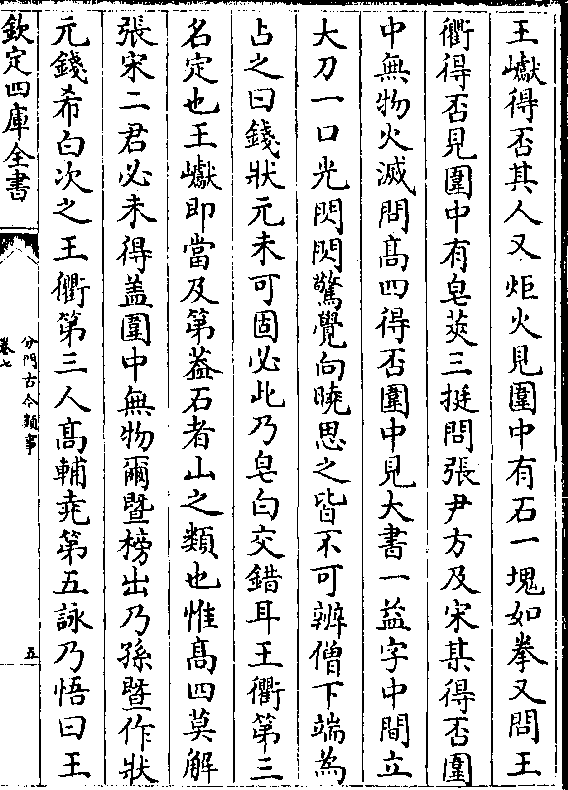 王巘得否其人又炬火見圍中有石一塊如拳又問王
衢得否見圍中有皂莢三挺問張尹方及宋某得否圍
中無物火滅問高四得否圍中見大書一益字中間立
大刀一口光閃閃驚覺向曉思之皆不可辨僧下端為
占之曰錢狀元未可固必此乃皂白交錯耳王衢第三
名定也王巘即當及第葢石者山之類也惟高四莫解
張宋二君必未得盖圍中無物爾暨榜出乃孫暨作狀
元錢希白次之王衢第三人高輔堯第五詠乃悟曰王
欽定四庫全書
分門古今類事
卷七
五